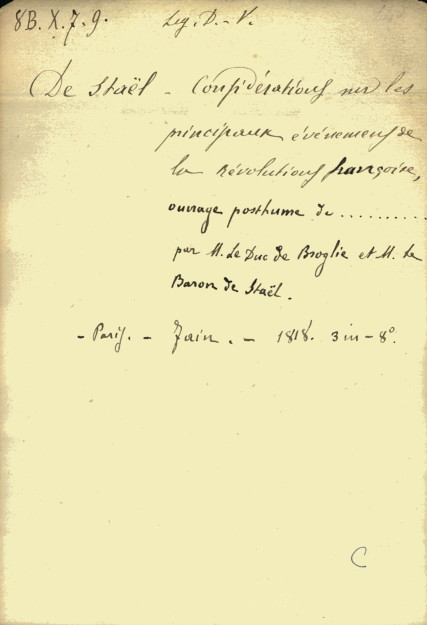 8B. X. 7. 9. Leg. D.-V.
De Staël - Considérations sur les
principaux événemens de
la Révolutions françoise,
ouvrage posthume de ..........
par M. Le Duc de Broglie et M. Le
Baron de Staël.
- Paris. - Jain. - 1818. 3 in-8°
C